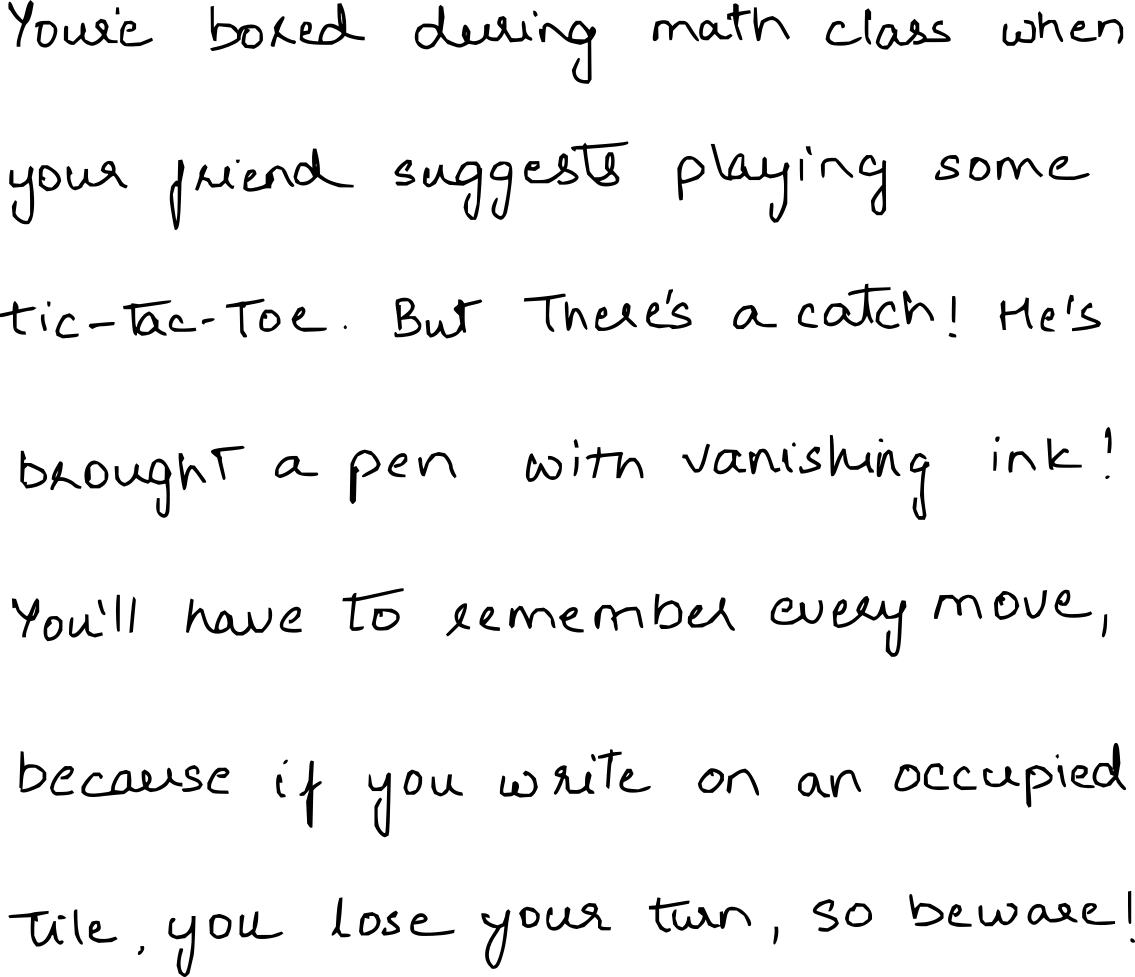 You're bored during math class when
your friend suggests playing some
tic-tac-toe. But there's a catch! He's
brought a pen with vanishing ink!
You'll have to remember every move,
because if you write on an occupied
tile, you lose your turn, so beware!